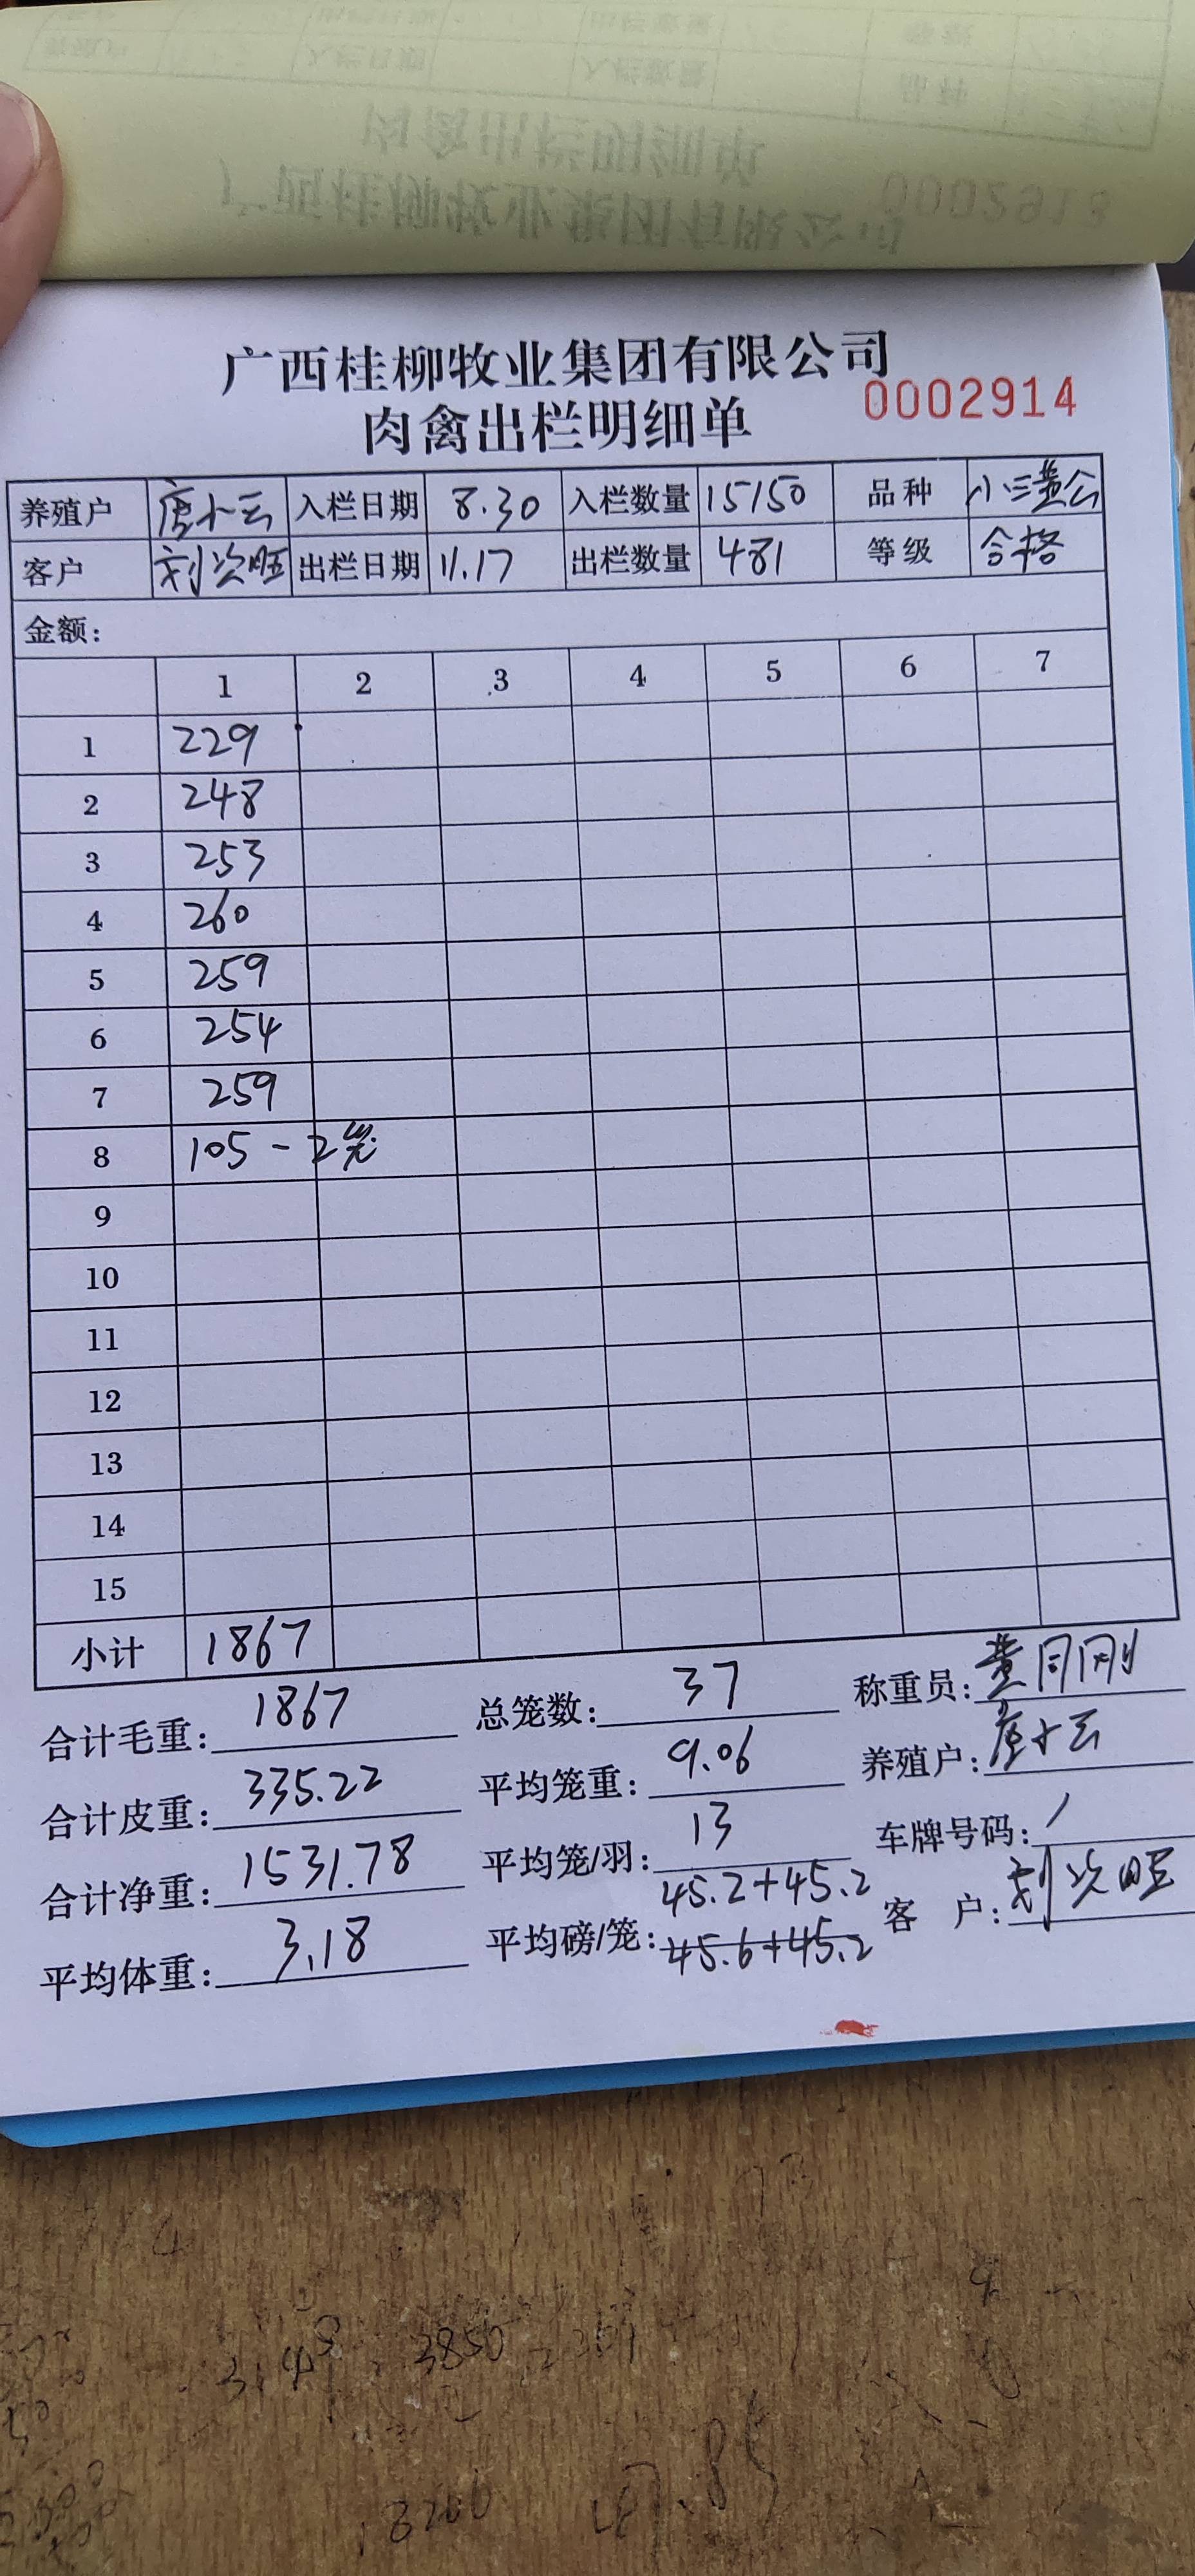 广西桂柳牧业集团有限公司
肉禽出栏明细单 0002914
养殖户 唐小云 入栏日期 8.30 入栏数量 15150 品种 小三黄公
客户 刘次旺 出栏日期 11.17 出栏数量 481 等级 合格
金额:
1 2 3 4 5 6 7
1 229
2 248
3 253
4 260
5 259
6 254
7 259
8 105-2笼
9
10
11
12
13
14
15
小计 1867
合计毛重: 1867 总笼数: 37 称重员: 黄同刚
合计皮重: 335.22 平均笼重: 9.06 养殖户: 唐小云
合计净重: 1531.78 平均笼/羽: 13 车牌号码: /
45.2+45.2
平均体重: 3.18 平均磅/笼: 45.6+45.2 客 户: 刘次旺